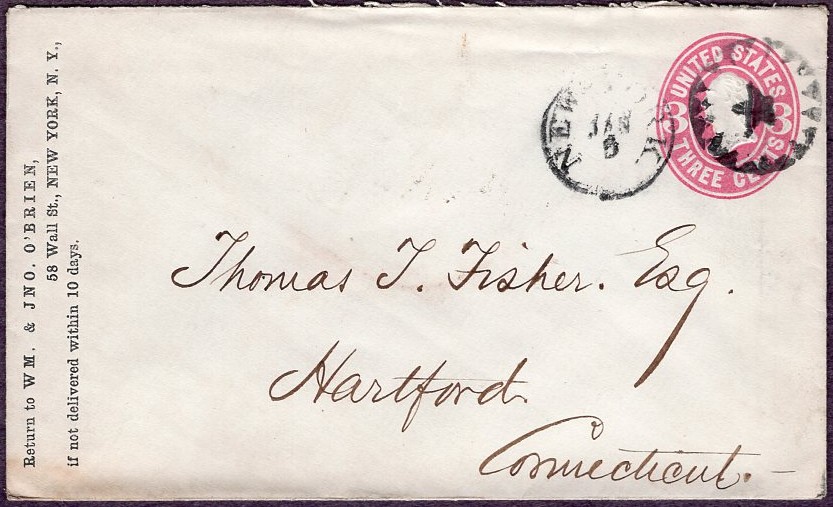 Return to WM. & JNO. O'BRIEN,
58 Wall St., NEW YORK, N. Y.,
if not delivered within 10 days.
UNITED STATES
3 3
THREE CENTS
NEW YORK
JAN
5
N.Y.
Thomas T. Fisher. Esq.
Hartford.
Connecticut.